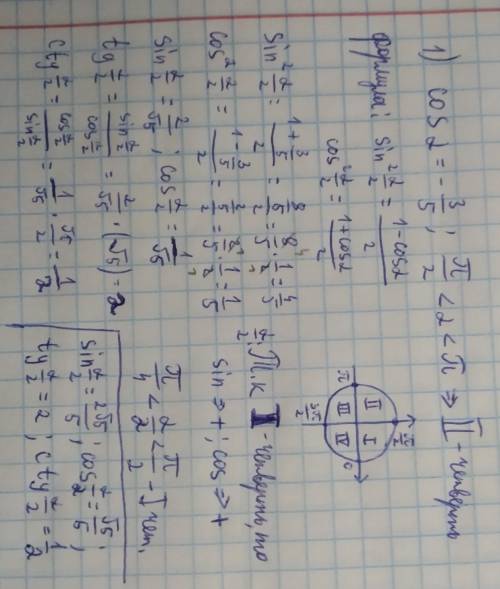 1) cos α = -3/5; π/2 < α < π ⇒ II - четверть
Формула: sin² α/2 = (1 - cos α)/2
cos² α/2 = (1 + cos α)/2
π/2
II I
π 0
III IV
3π/2
sin² α/2 = (1 + 3/5)/2 = (8/5)/2 = 8/5 · 1/2 = 4/5
cos² α/2 = (1 - 3/5)/2 = (2/5)/2 = 2/5 · 1/2 = 1/5
sin α/2 = 2/√5; cos α/2 = 1/√5
tg α/2 = (sin α/2)/(cos α/2) = 2/√5 · (√5) = 2
ctg α/2 = (cos α/2)/(sin α/2) = 1/√5 · √5/2 = 1/2
α/2: Т.к I - четверть, то
sin ⇒ +; cos ⇒ +
π/4 < α/2 < π/2 - I чет.
sin α/2 = 2√5/5; cos α/2 = √5/5;
tg α/2 = 2; ctg α/2 = 1/2